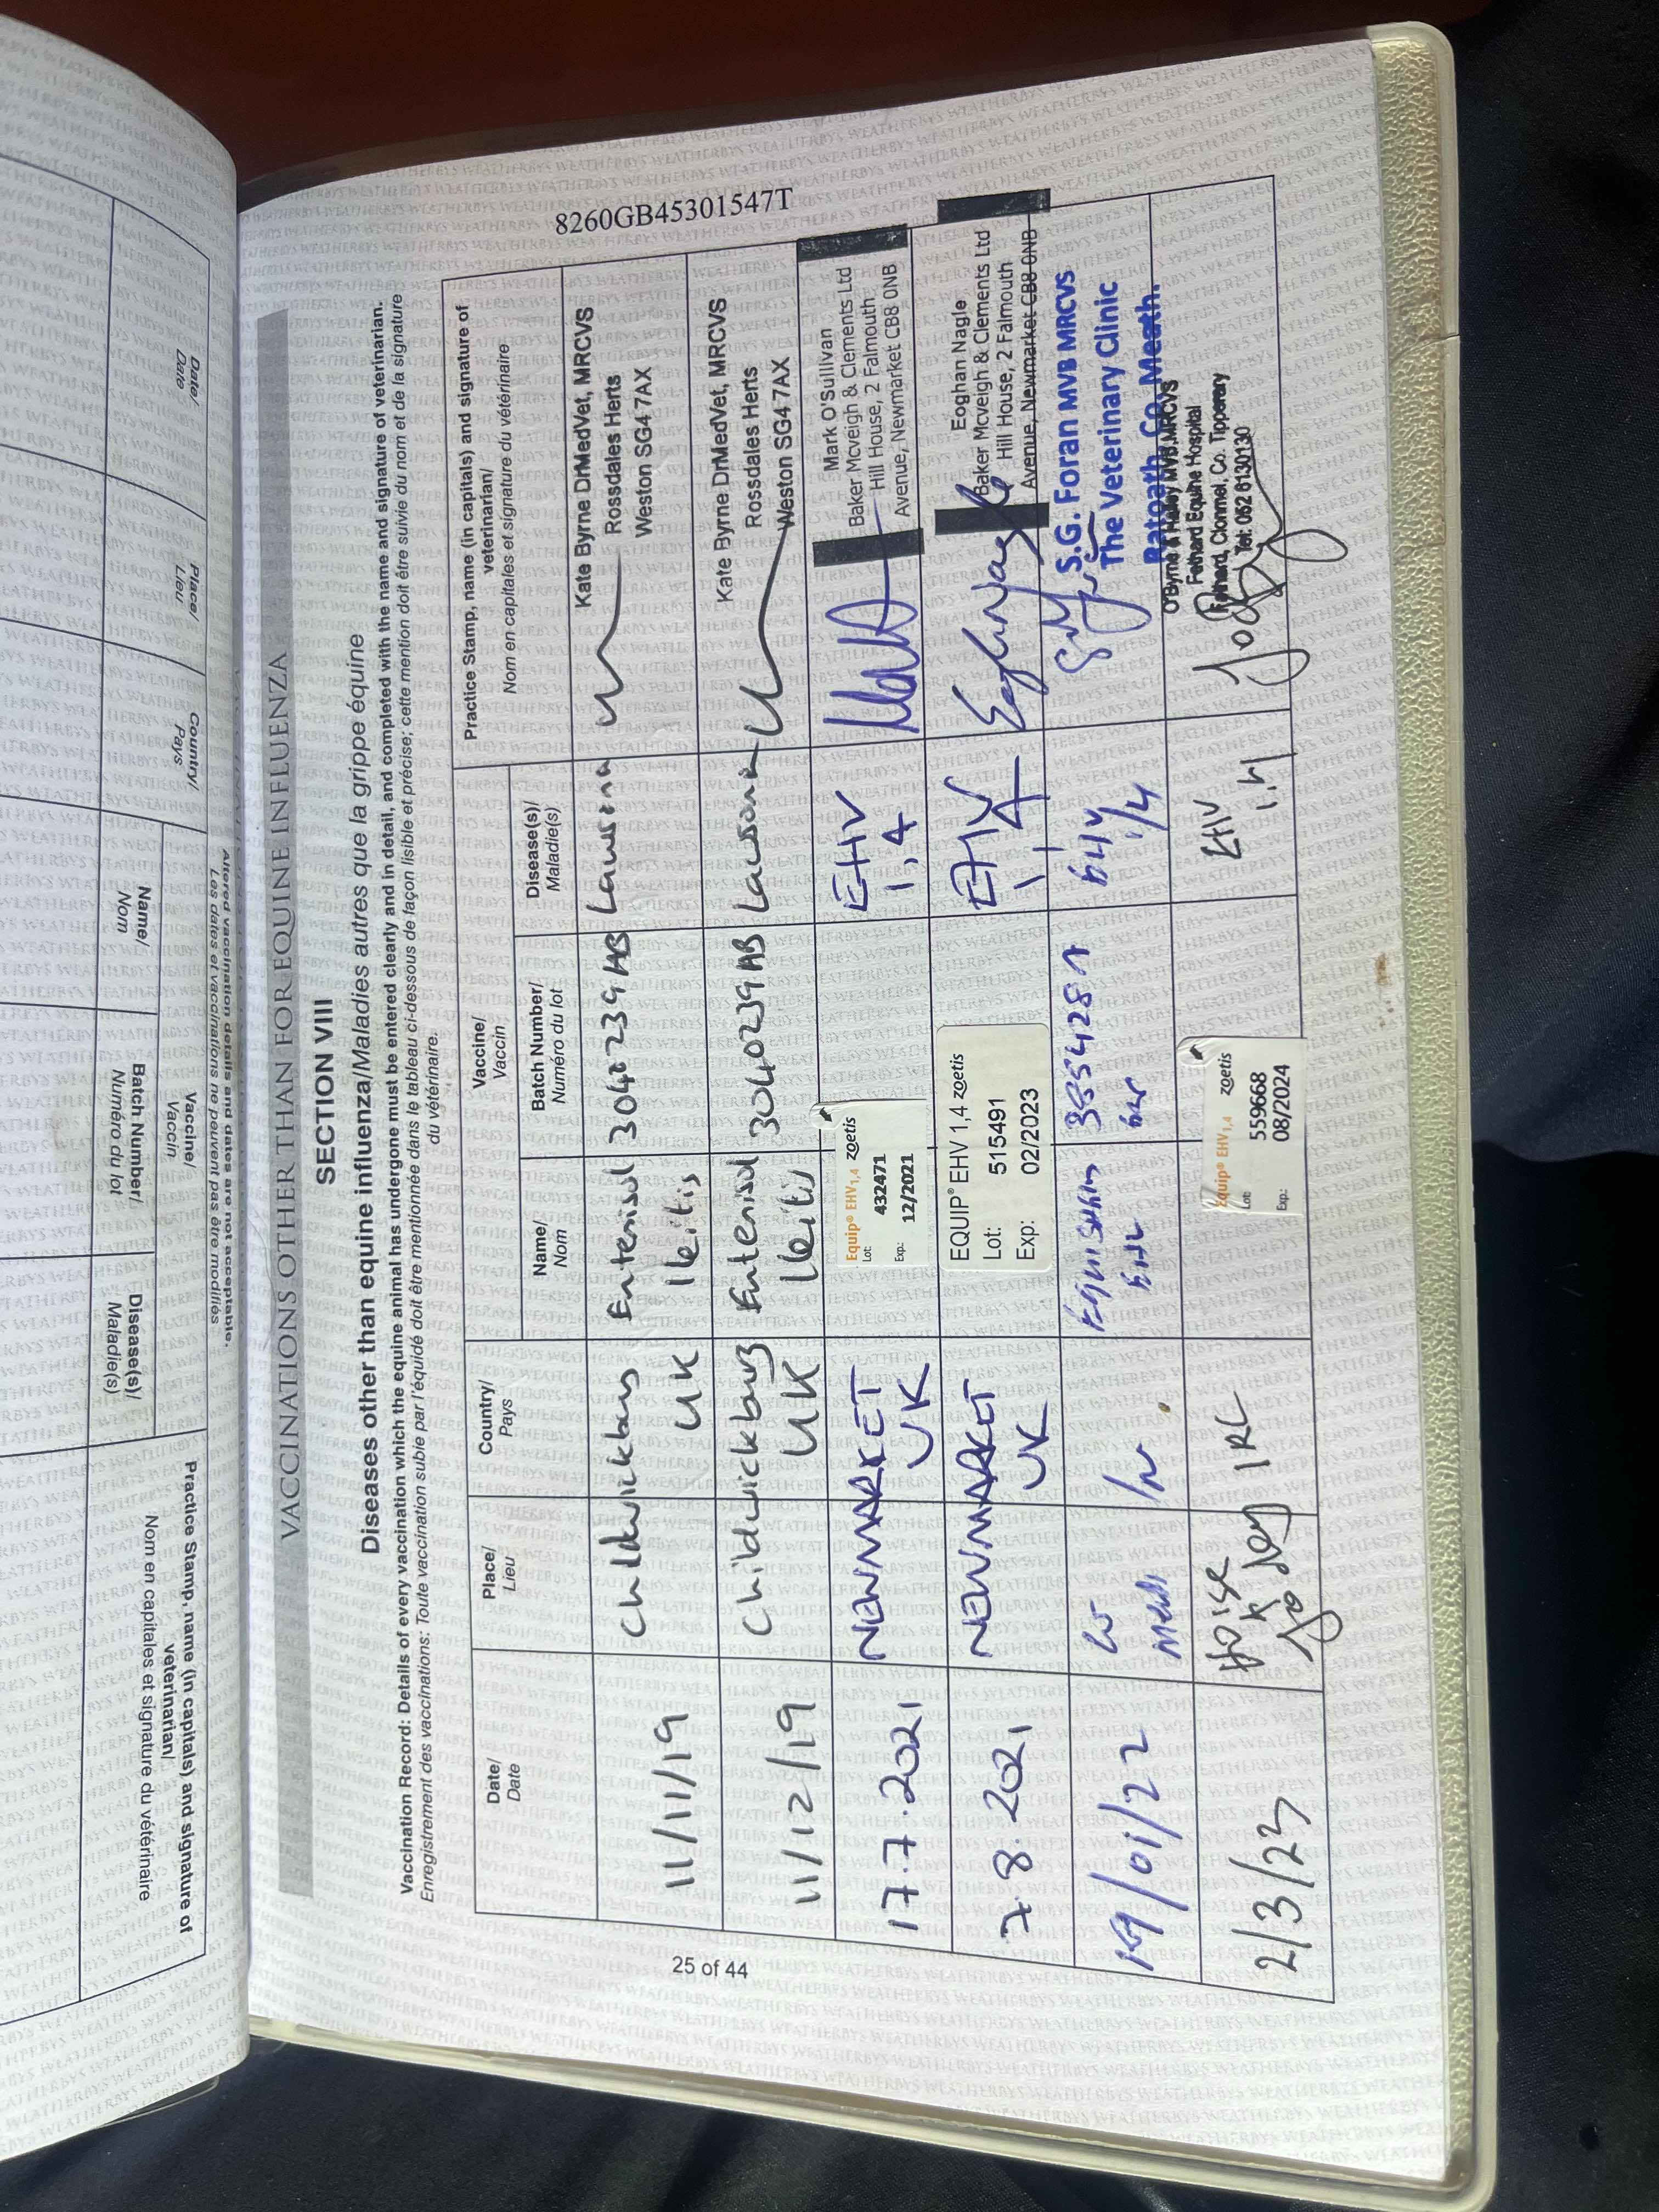 Date/
Date
Place/
Lieu
Country/
Pays
Name/
Nom
Vaccine/
Vaccin
Batch Number/
Numéro du lot
Disease(s)/
Maladie(s)
Practice Stamp, name (in capitals) and signature of
veterinarian/
Nom en capitales et signature du vétérinaire
Altered vaccination details and dates are not acceptable.
Les dates et vaccinations ne peuvent pas être modifiés
8260GB45301547T
VACCINATIONS OTHER THAN FOR EQUINE INFLUENZA
SECTION VIII
Diseases other than equine influenza/Maladies autres que la grippe équine
Vaccination Record: Details of every vaccination which the equine animal has undergone must be entered clearly and in detail, and completed with the name and signature of veterinarian.
Enregistrement des vaccinations: Toute vaccination subie par l'équidé doit être mentionnée dans le tableau ci-dessous de façon lisible et précise; cette mention doit être suivie du nom et de la signature
du vétérinaire.
Date/
Date
Place/
Lieu
Country/
Pays
Vaccine/
Vaccin
Name/
Nom
Batch Number/
Numéro du lot
Disease(s)/
Maladie(s)
Practice Stamp, name (in capitals) and signature of
veterinarian/
Nom en capitales et signature du vétérinaire
11/11/19
Childwickbury
UK
Enterisol
Ileitis
3040239AB
Lawsonia
Kate Byrne DrMedVet, MRCVS
Rossdales Herts
Weston SG4 7AX
11/12/19
Childwickbury
UK
Enterisol
Ileitis
3040239AB
Lawsonia
Kate Byrne DrMedVet, MRCVS
Rossdales Herts
Weston SG4 7AX
17.7.2021
NEWMARKET
UK
Equip® EHV1,4 zoetis
Lot: 432471
Exp: 12/2021
EHV
1,4
Mark O'Sullivan
Baker Mcveigh & Clements Ltd
Hill House, 2 Falmouth
Avenue, Newmarket CB8 0NB
7.8.2021
NEWMARKET
UK
EQUIP® EHV 1,4 zoetis
Lot: 515491
Exp: 02/2023
EHV
1,4
Eoghan Nagle
Baker Mcveigh & Clements Ltd
Hill House, 2 Falmouth
Avenue, Newmarket CB8 0NB
19/01/22
Co
Meath
EHV
1/4
S.G. Foran MVB MRCVS
The Veterinary Clinic
Ratoath, Co. Meath.
2/3/23
IRL
Equip® EHV1,4 zoetis
Lot: 559668
Exp: 08/2024
EHV
1.4
Fethard Equine Hospital
Fethard, Clonmel, Co. Tipperary
Tel: 052 6130130
25 of 44